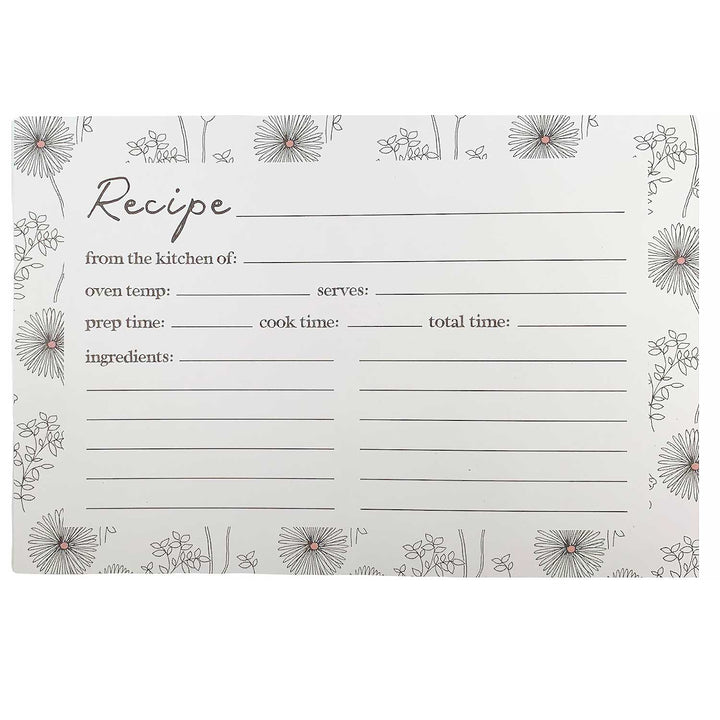 Recipe
from the kitchen of:
oven temp: serves:
prep time: cook time: total time:
ingredients: